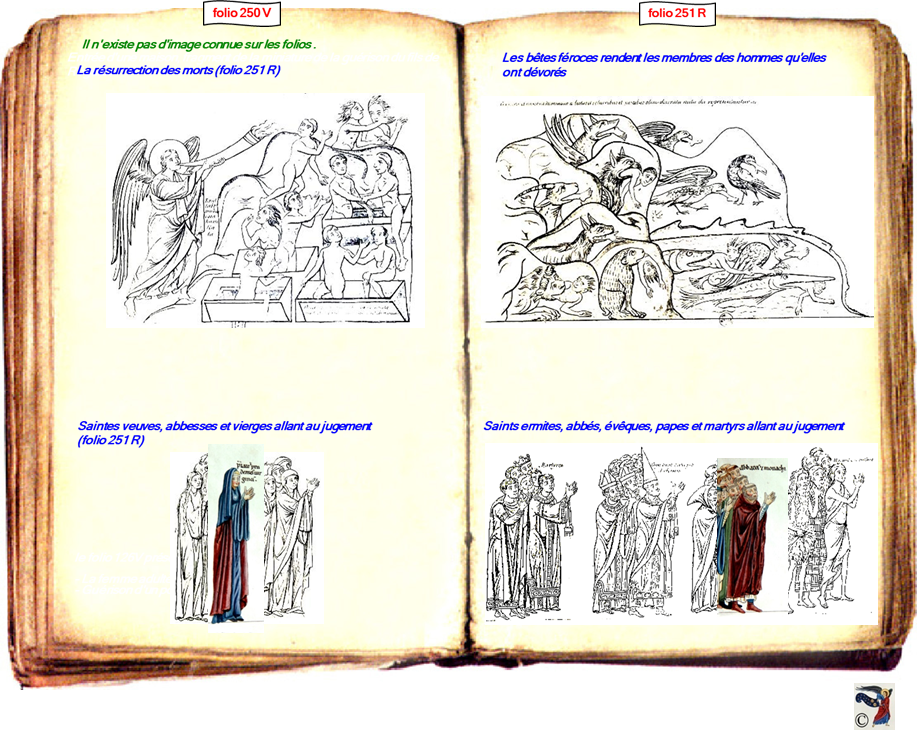 folio 250 V
Il n'existe pas d'image connue sur les folios .
La résurrection des morts (folio 251 R)
Saintes veuves, abbesses et vierges allant au jugement
(folio 251 R)
folio 251 R
Les bêtes féroces rendent les membres des hommes qu'elles
ont dévorés
Saints ermites, abbés, évêques, papes et martyrs allant au jugement
Martyres
©